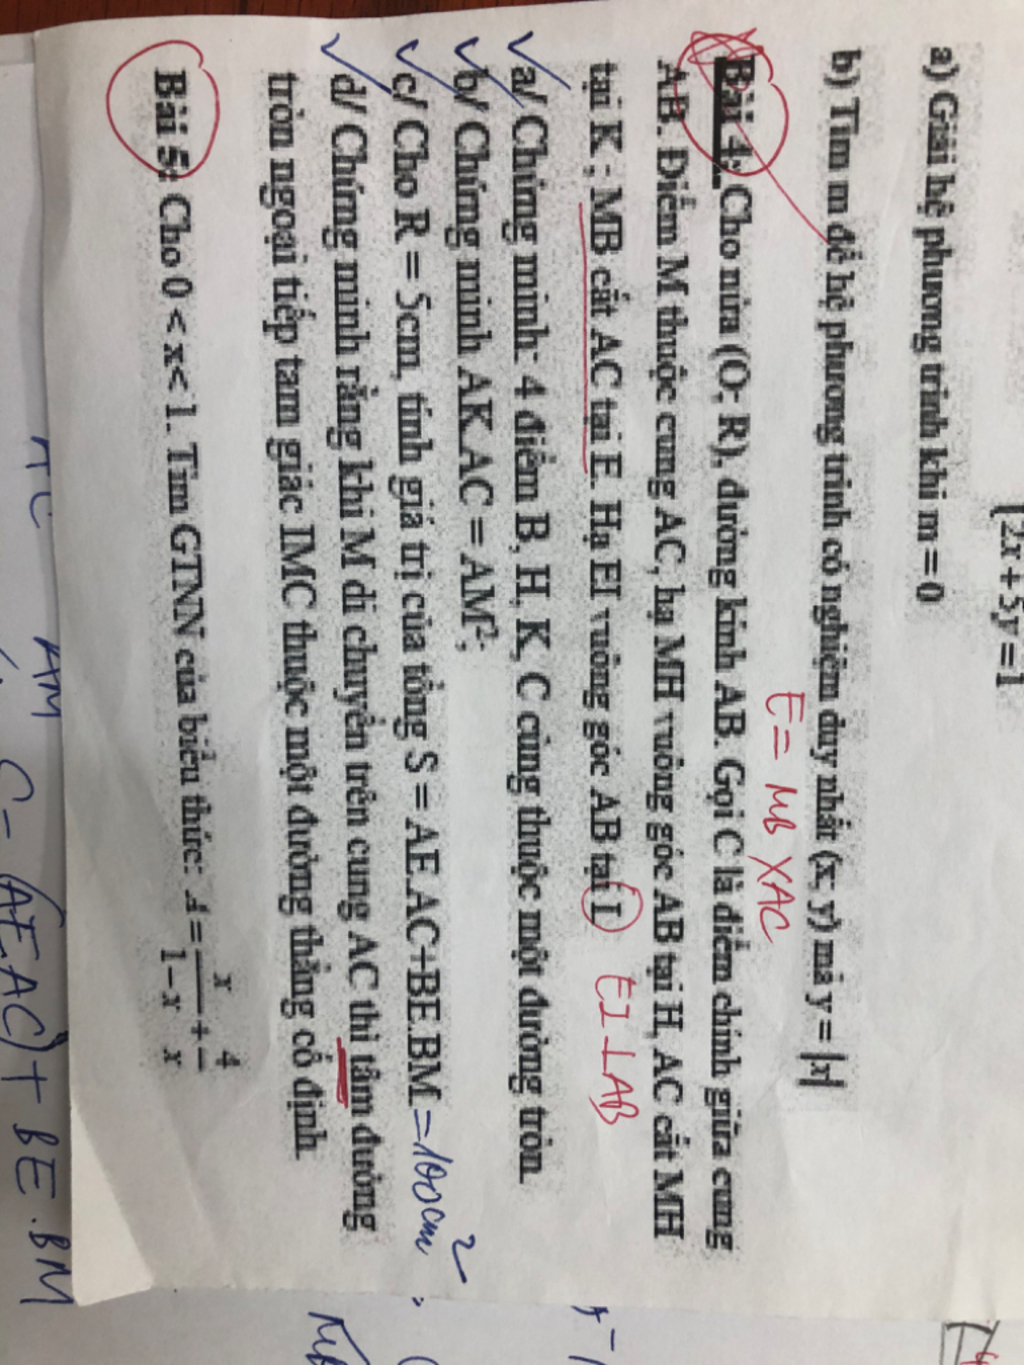 {2x + 5y = 1
a) Giải hệ phương trình khi m = 0
b) Tìm m để hệ phương trình có nghiệm duy nhất (x; y) mà y = |x|
E = MB X AC
Bài 4: Cho nửa (O; R), đường kính AB. Gọi C là điểm chính giữa cung
AB. Điểm M thuộc cung AC, hạ MH vuông góc AB tại H, AC cắt MH
tại K ; MB cắt AC tại E. Hạ EI vuông góc AB tại I. EI ⊥ AB
a/ Chứng minh: 4 điểm B, H, K, C cùng thuộc một đường tròn.
b/ Chứng minh AK.AC = AM²;
c/ Cho R = 5cm, tính giá trị của tổng S = AE.AC+BE.BM = 100cm²
d/ Chứng minh rằng khi M di chuyển trên cung AC thì tâm đường
tròn ngoại tiếp tam giác IMC thuộc một đường thẳng cố định.
Bài 5: Cho 0 < x < 1. Tìm GTNN của biểu thức: A = x/(1-x) + 4/x
AM
(AE.AC) + BE.BM